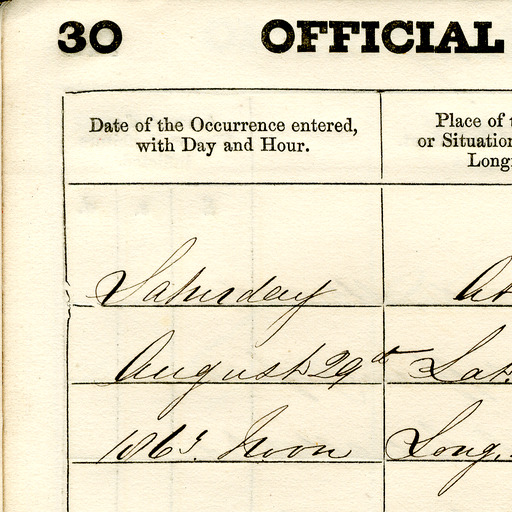 30 OFFICIAL
Date of the Occurrence entered,
with Day and Hour.
Place of t
or Situation
Long
Saturday At
August 29th Lat.
1863. Noon Long.